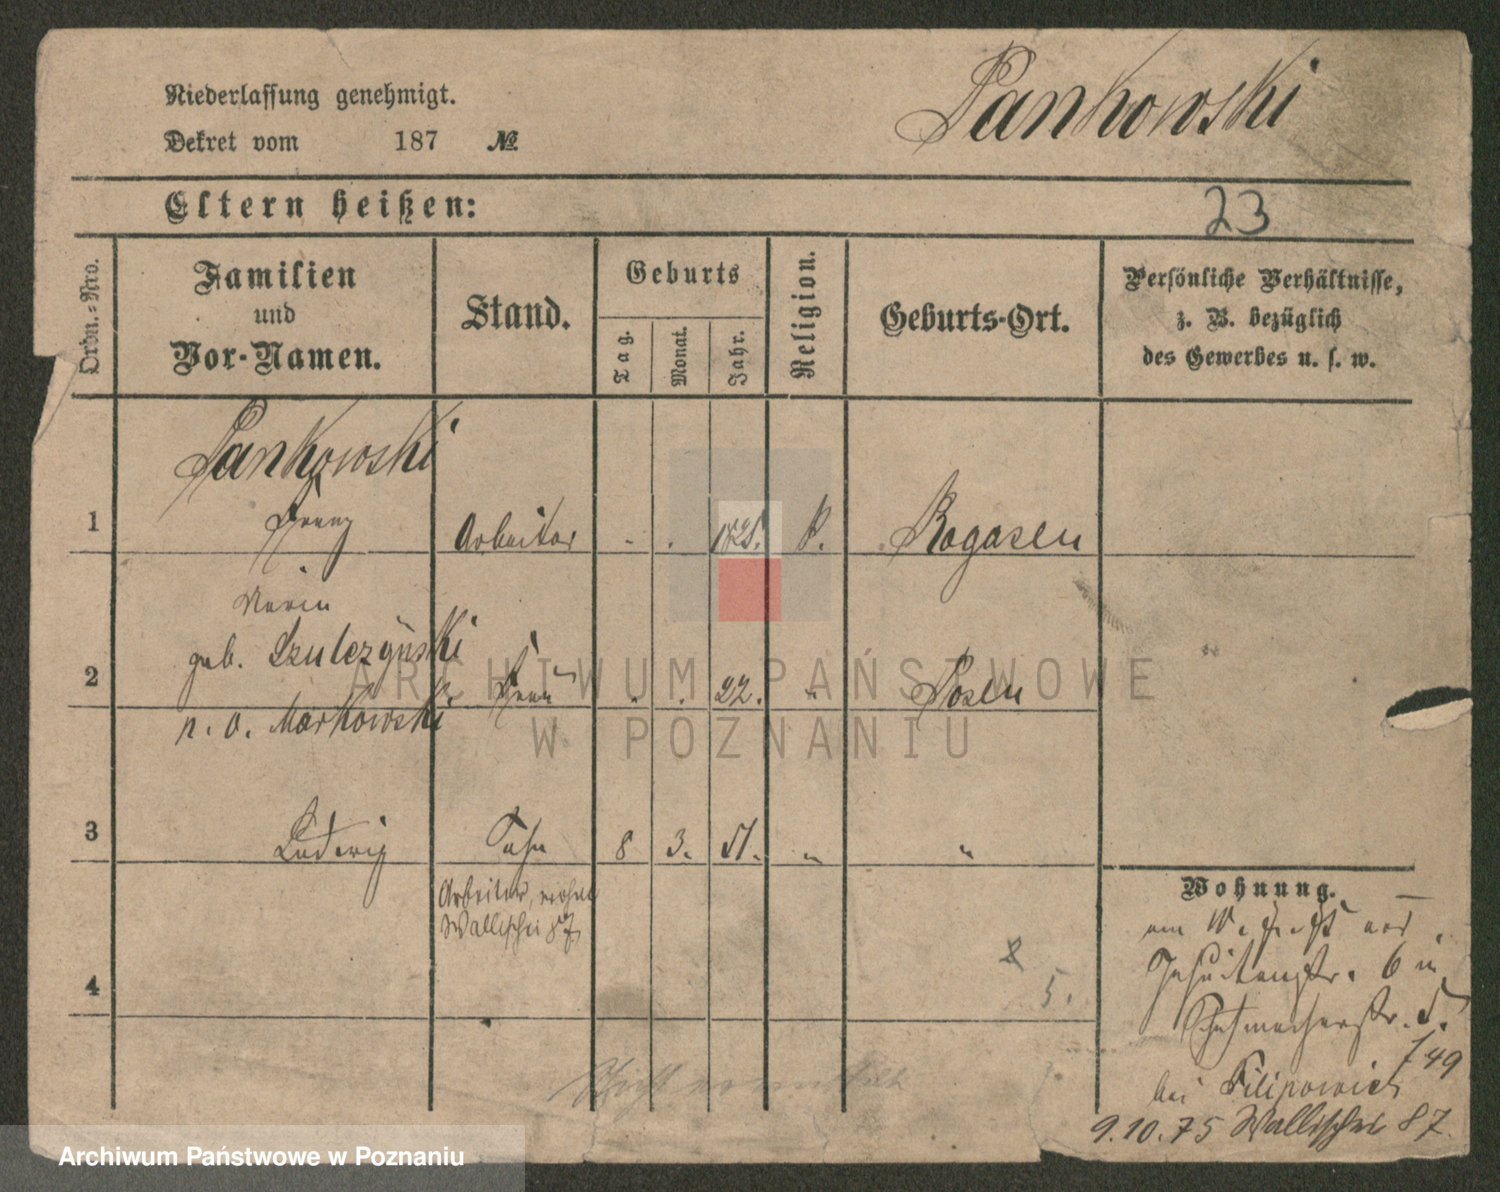 Niederlassung genehmigt.
Pankowski
Dekret vom 187 №
Eltern heißen:
23
Ordn.-Nro.
Familien
und
Vor-Namen.
Stand.
Geburts
Tag.
Monat.
Jahr.
Religion.
Geburts-Ort.
Persönliche Verhältnisse,
z. B. bezüglich
des Gewerbes u. s. w.
Pankowski
1 Franz Arbeiter - . 1825. K. Rogasen
Marie
geb. Szulczyńska
2 Frau . . 22. " Posen
n. o. Markowski
3 Ludwig Sohn 8 3. 51. " "
Arbeiter, wohnt
Wallischei 87
4
5.
Wohnung.
Jesuitenstr. 6 u
Schuhmacherstr. 5.
/49
bei Filipowicz
9.10.75 Wallischei 87
ARCHIWUM PAŃSTWOWE
W POZNANIU
Archiwum Państwowe w Poznaniu